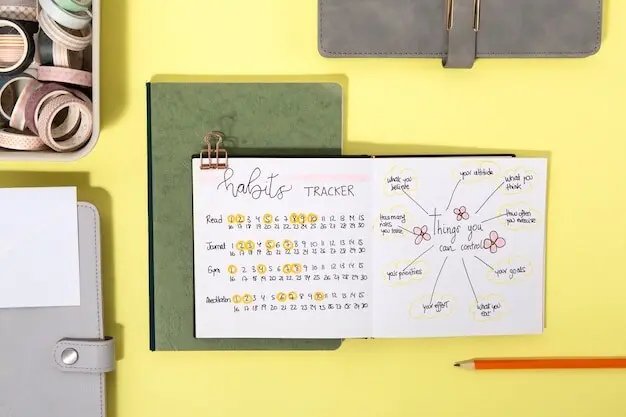 habits TRACKER
Read 1 2 3 4 5 6 7 8 9 10 11 12 13 14 15
16 17 18 19 20 21 22 23 24 25 26 27 28 29 30
Journal 1 2 3 4 5 6 7 8 9 10 11 12 13 14 15
16 17 18 19 20 21 22 23 24 25 26 27 28 29 30
Gym 1 2 3 4 5 6 7 8 9 10 11 12 13 14 15
16 17 18 19 20 21 22 23 24 25 26 27 28 29 30
Meditation 1 2 3 4 5 6 7 8 9 10 11 12 13 14 15
16 17 18 19 20 21 22 23 24 25 26 27 28 29 30
Things you
can control
your attitude
what you
think
how often
you exercise
your goals
what you
eat
your effort
your priorities
how many
risks
you take
what you
believe